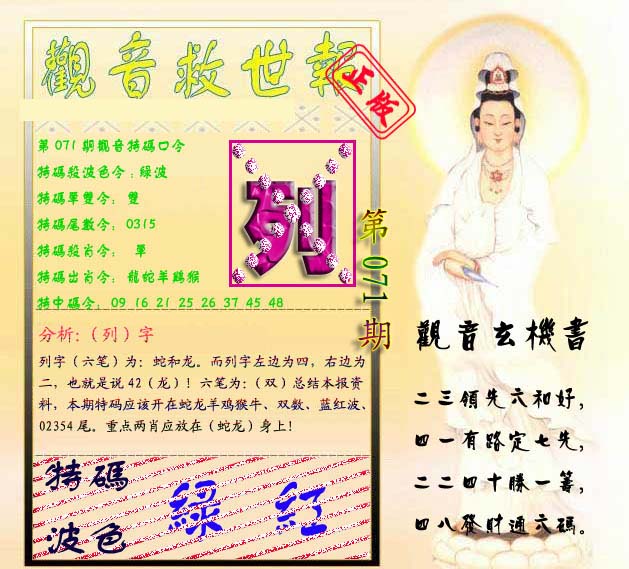 觀音救世報
正版
第071期觀音特碼口令
特碼殺波色令：綠波
特碼單雙令： 雙
特碼尾數令： 0315
特碼殺肖令： 單
特碼出肖令： 龍蛇羊鷄猴
特中碼令： 09 16 21 25 26 37 45 48
列
第071期
分析：（列）字
列字（六笔）为：蛇和龙。而列字左边为四，右边为
二，也就是说42（龙）！六笔为：（双）总结本报资
料，本期特码应该开在蛇龙羊鸡猴牛、双数、蓝红波、
02354尾。重点两肖应放在（蛇龙）身上！
特碼
波色
綠 紅
觀音玄機書
二三領先六和好，
四一有路定七先，
二二四十勝一籌，
四八發財通六碼。